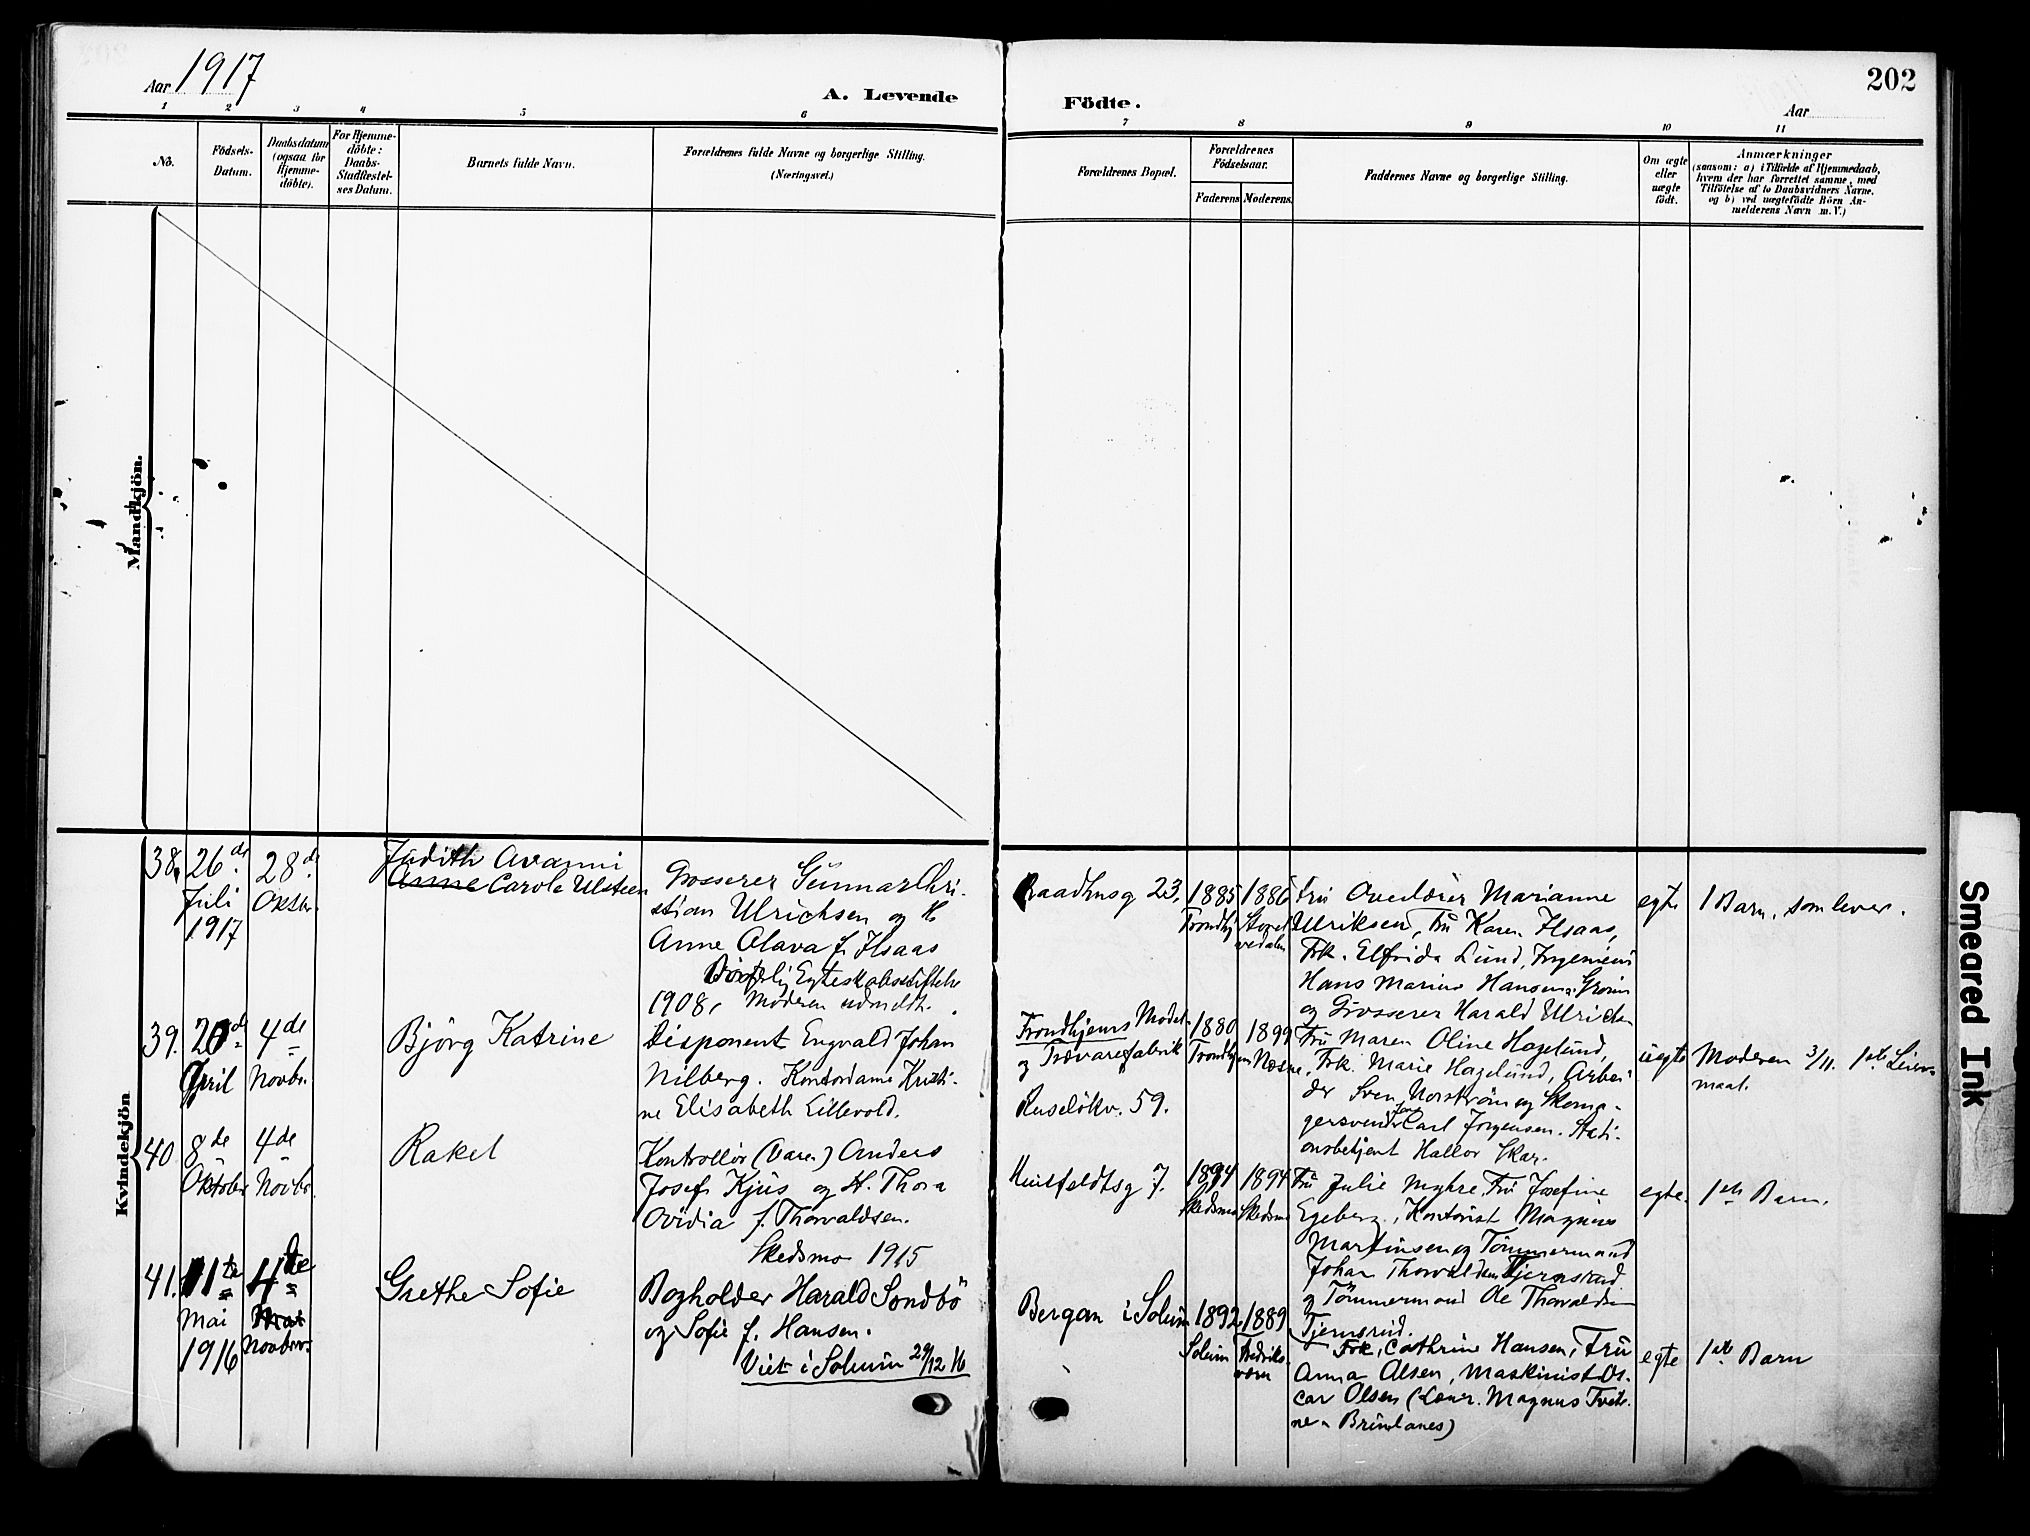 Aar 1917
A. Levende
Födte.
Aar
202
1 2 3 4 5 6
7 8 9 10 11
Nö.
Födsels-
Datum.
Daabsdatum
(ogsaa for
Hjemme-
döbte).
For Hjemme-
döbte:
Daabs-
Stadfæstel-
ses Datum.
Barnets fulde Navn.
Forældrenes fulde Navne og borgerlige Stilling.
(Næringsvei.)
Forældrenes Bopæl.
Forældrenes
Födselsaar.
Faderens Moderens.
Faddernes Navne og borgerlige Stilling.
Om ægte
eller
uægte
födt.
Anmærkninger
(saasom: a) i Tilfælde af Hjemmedaab,
hvem der har forrettet samme, med
Tilföielse af to Daabsvidners Navne,
og b) ved uægtefödte Börn An-
melderens Navn m. V.)
Mandkjön.
Kvindekjön
38.
26de
Juli
1917
28de
Oktbr.
Judith Avanni
Anne Carola Ulsteen
Grosserer Gunnar Chri-
stian Ulrichsen og H.
Anne Olava f. Isaas
Borgerlig Egteskabsstiftelse
1908, Moderen udmeldt.
Raadhusg 23.
1885
Trondhj
1886
Fru Marianne
Ulriksen, Fru Karen Isaas,
Frk. Elfrida Lund, Ingeniør
Hans Marius Hansen
og Grosserer Harald Ulrichsen
egte
1 Barn, som lever.
39.
20de
April
4de
Novbr.
Bjórg Katrine
Disponent Engvald Johan
Nilberg. Kontordame Kristi-
ne Elisabeth Lillevold.
Trondhjems Model-
og Trævarefabrik
Ruselökv. 59.
1880
Trondhjem
1899
Næsne
Fru Maren Oline Hagelund,
Frk. Marie Hagelund, Arbei
der Sven Norström og Skoma-
gersvend Carl Jörgensen. Stati-
onsbetjent Hallor Skar.
uegte
Moderen 3/11. 1ste Leier-
maal.
40
8de
Oktober
4de
Novbr.
Rakel
Kontrollör (Vare) Anders
Josef Kjus og H. Thora
Ovidia f. Thorvaldsen.
Skedsmo 1915
Huitfeldtsg 7.
1894
Skedsmo
1894
Skedsmo
Fru Julie Myhre, Fru Josefine
Egeberg, Kontorist Magnus
Martinsen og Tömmermand
Johan Thorvaldsen Tjernsrud
og Tömmermand Ole Thorvaldsen
Tjernsrud.
egte.
1ste Barn.
41.
11te
Mai
1916
4de
Mai
Novbr.
Grethe Sofie
Bogholder Harald Sondbö
og Sofie f. Hansen.
Viet i Solum 29/12 16
Bergan i Solum
1892
Solum
1889
Fredriks-
værn
Frk. Cathrine Hansen, Fru
Anna Olsen, Maskinist Os-
car Olsen (Magnus Tveit-
egte
1ste Barn
Smeared Ink